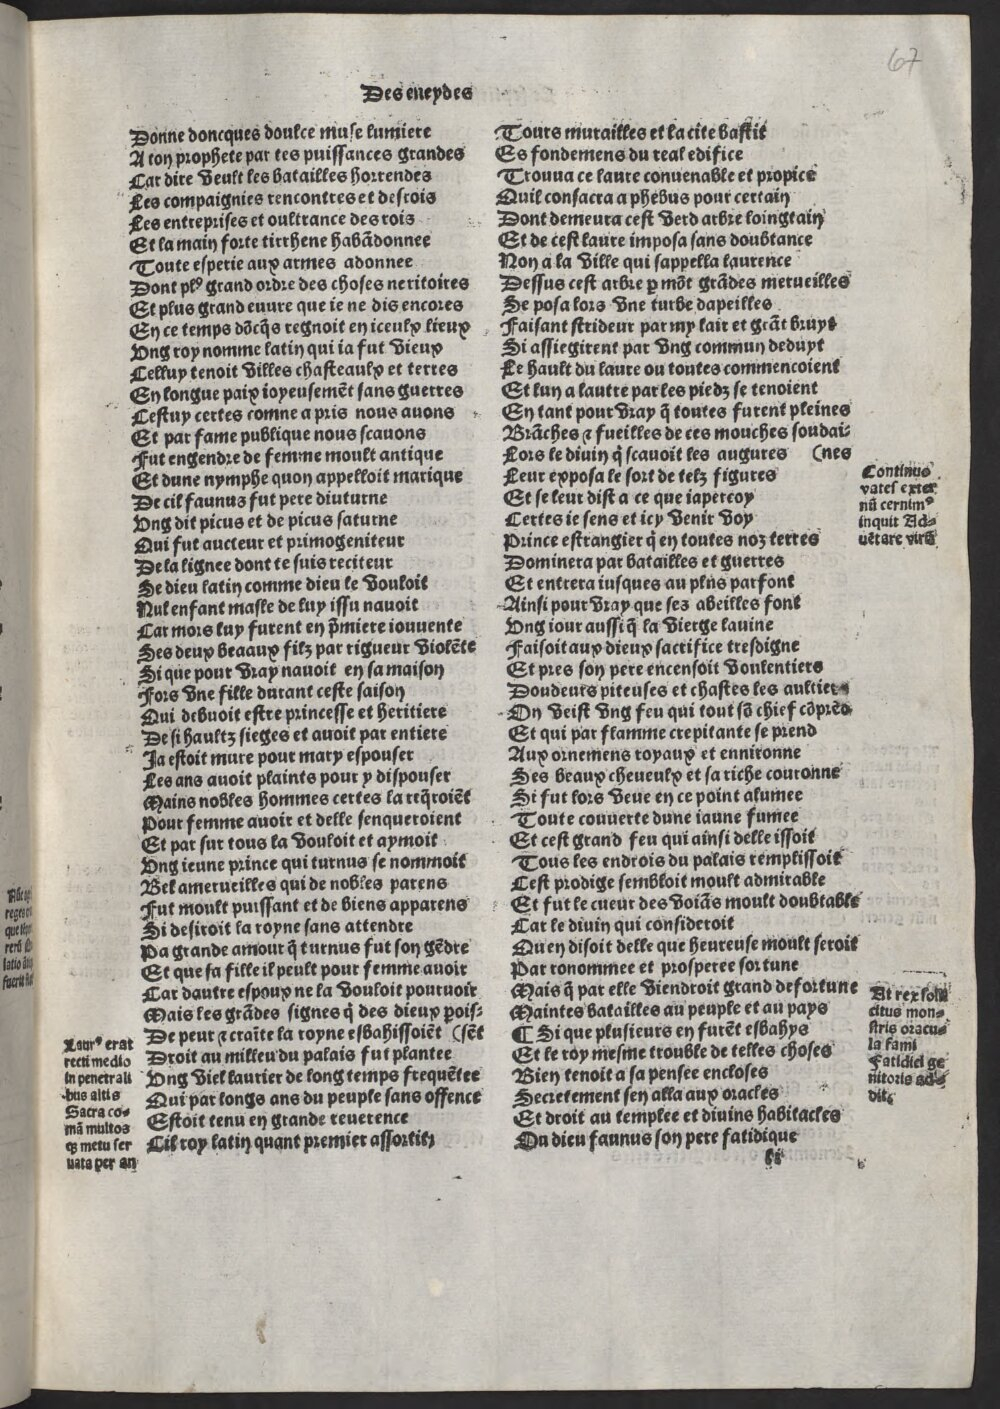 67
Des eneydes
Donne doncques doulce muse lumiere
A ton prophete par tes puissances grandes
Car dire veult les batailles horrendes
Les compaignies rencontres et desrois
Les entreprises et oultrance des rois
Et la main forte tirrhene habādonnee
Toute esperie aux armes adonnee
Dont pl⁹ grand ordre des choses neritoires
Et plus grand euure que ie ne dis encores
En ce temps dōcq̄s regnoit en iceulx lieux
Vng roy nomme latin qui ia fut vieux
Celluy tenoit villes chasteaulx et terres
En longue paix ioyeusemēt sans guerres
Cestuy certes comne a pris nous auons
Et par fame publique nous scauons
Fut engendre de femme moult antique
Et dune nymphe quon appelloit marique
De cil faunus fut pere diuturne
Vng dit picus et de picus saturne
Qui fut aucteur et primogeniteur
De la lignee dont te suis reciteur
Se dieu latin comme dieu le vouloit
Nul enfant masle de luy issu nauoit
Car mors luy furent en p̄miere iouuente
Ses deux beaaux filz par rigueur violēte
Si que pour vray nauoit en sa maison
Fors vne fille durant ceste saison
Qui debuoit estre princesse et heritiere
De si haultz sieges et auoit par entiere
Ja estoit mure pour mary espouser
Les ans auoit plaints pour y dispouser
Mains nobles hommes certes la req̄roiēt
Pour femme auoir et delle senqueroient
Et par sur tous la vouloit et aymoit
Vng ieune prince qui turnus se nommoit
Bel amerueilles qui de nobles parens
Fut moult puissant et de biens apparens
Si desiroit la royne sans attendre
Pa grande amour q̄ turnus fut son gēdre
Et que sa fille il peult pour femme auoir
Car dautre espoux ne la vouloit pouruoir
Mais les grādes signes q̄ des dieux pois-
De peur ⁊ craīte la royne esbahissoiēt (sēt
Droit au milleu du palais fut plantee
Vng viel laurier de long temps frequētee
Qui par longs ans du peuple sans offence
Estoit tenu en grande reuerence
Cil roy latin quant premier assortit
Laur⁹ erat
recti medio
in penetrali
bus altis
Sacra co-
mā multos
q̄ metu ser
uata per an
Tours murailles et la cite bastit
Es fondemens du real edifice
Trouua ce laure conuenable et propice
Quil consacra a phebus pour certain
Dont demeura cest verd arbre loingtain
Et de cest laure imposa sans doubtance
Non a la ville qui sappella laurence
Dessus cest arbre p mōt grādes merueilles
Se posa lors vne turbe dapeilles
Faisant strideur par my lair et grāt bruyt
Si assiegirent par vng commun deduyt
Le hault du laure ou toutes commencoient
Et lun a lautre par les piedz se tenoient
En tant pour vray q̄ toutes furent pleines
Brāches ⁊ fueilles de ces mouches soudai-
Lors le diuin q̄ scauoit les augures (nes
Leur exposa le sort de telz figures
Et se leur dist a ce que iapercoy
Certes ie sens et icy venir voy
Prince estrangier q̄ en toutes noz terres
Dominera par batailles et guerres
Et entrera iusques au plns parfont
Ainsi pour vray que sez abeilles font
Vng iour aussi q̄ la vierge lauine
Faisoit aux dieux sacrifice tresdigne
Et pres son pere encensoit voulentiers
Doudeurs piteuses et chastes les aultiers
On veist vng feu qui tout sō chief cōprēd
Et qui par flamme crepitante se prend
Aux ornemens royaux et ennironne
Ses beaux cheueulx et sa riche couronne
Si fut lors veue en ce point alumee
Toute couuerte dune iaune fumee
Et cest grand feu qui ainsi delle issoit
Tous les endrois du palais remplissoit
Cest prodige sembloit moult admirable
Et fut le cueur des voiās moult doubtable
Car le diuin qui consideroit
Quen disoit delle que heureuse moult seroit
Par ronommee et prosperee fortune
Mais q̄ par elle viendroit grand defortune
Maintes batailles au peuple et au pays
¶ Si que plusieurs en furēt esbahys
Et le roy mesme trouble de telles choses
Bien tenoit a sa pensee encloses
Secretement sen alla aux oracles
Et droit au templee et diuins habitacles
Ou dieu faunus son pere fatidique
Continuo
vates exter
nū cernim⁹
inquit Ad-
uētare virū
At rex soli
citus mon-
stris oracu
la fami
Fatidici ge
nitoris ad-
dit